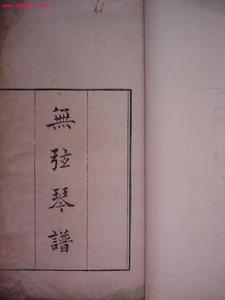 無弦琴譜